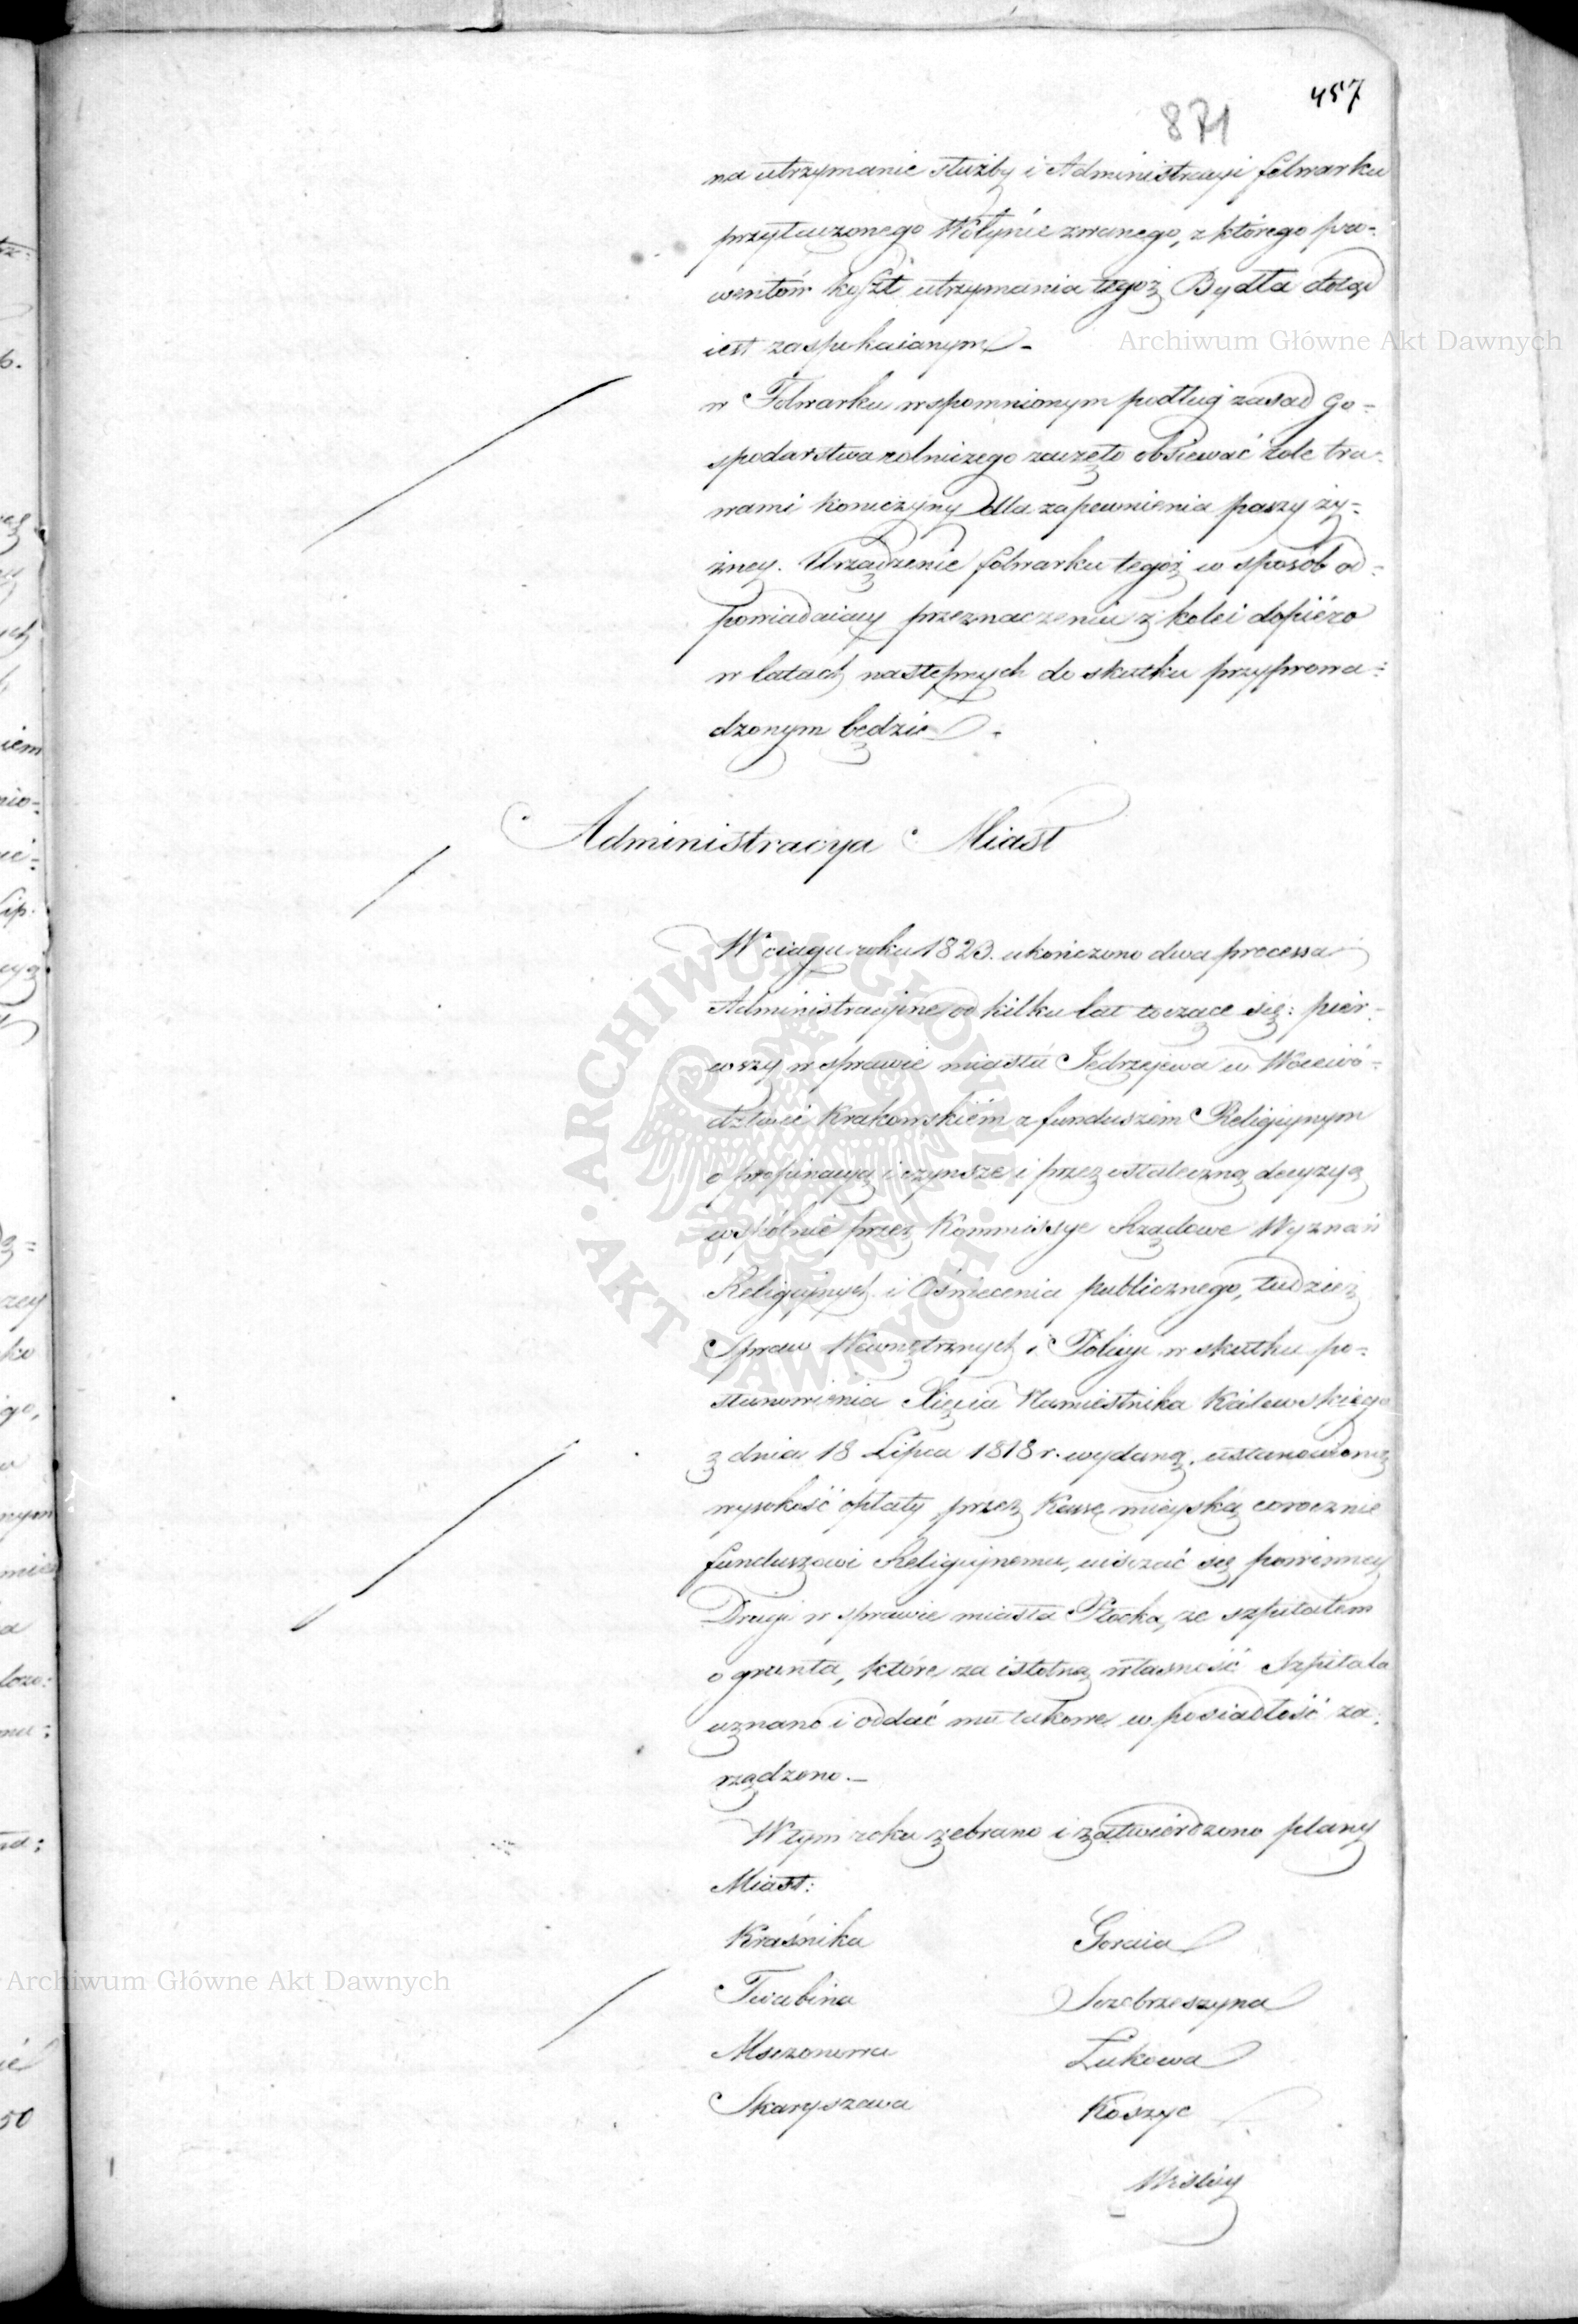 457
871
na utrzymanie służby i Administracyi folwarku
przyłączonego Wólynie zwanego, z którego pro-
wentów koszt utrzymania tegoż Bydła dotąd
iest zaspokaianym -
w Folwarku wspomnionym podług zasad Go-
spodarstwa rolniczego zaczęto obsiewać role tra-
wami koniczyny dla zapewnienia paszy ży-
zney. Urządzenie folwarku tegoż w sposób od-
powiadaiący przeznaczeniu z kolei dopiéro
w latach następnych do skutku przyprowa-
dzonym będzie -
Administracya Miast
W ciągu roku 1823. ukończono dwa processa
Administracyine od kilku lat toczące się: pier-
wszy w sprawie miasta Jędrzejewa w Woiewó-
dztwie Krakowskiém z funduszem Religiynym
o propinacyą i czynsze i przez ostateczną decyzyą
wspólnie przez Kommissye Rządowe Wyznań
Religiynych i Oświecenia publicznego, tudzież
Spraw Wewnętrznych i Policyi w skutku po-
stanowienia Xięcia Namiestnika Królewskiego
z dnia 18 Lipca 1818 r. wydaną, ustanowioną
wysokość opłaty przez Kassę mieyską corocznie
funduszowi Religiynemu, uiszczać się powinney
Drugi w sprawie miasta Płocka, ze szpitalem
o grunta, które za istotną własność Szpitala
uznano i oddać mu takowe w posiadłość za-
rządzono. -
W tym roku zebrano i zatwierdzono plany
Miast:
Kraśnika Goraia
Turobina Szczebrzeszyna
Mszczonowa Łukowa
Skaryszewa Koszyc
Wiślicy
Archiwum Główne Akt Dawnych
Archiwum Główne Akt Dawnych
· ARCHIWUM GŁÓWNE · AKT DAWNYCH